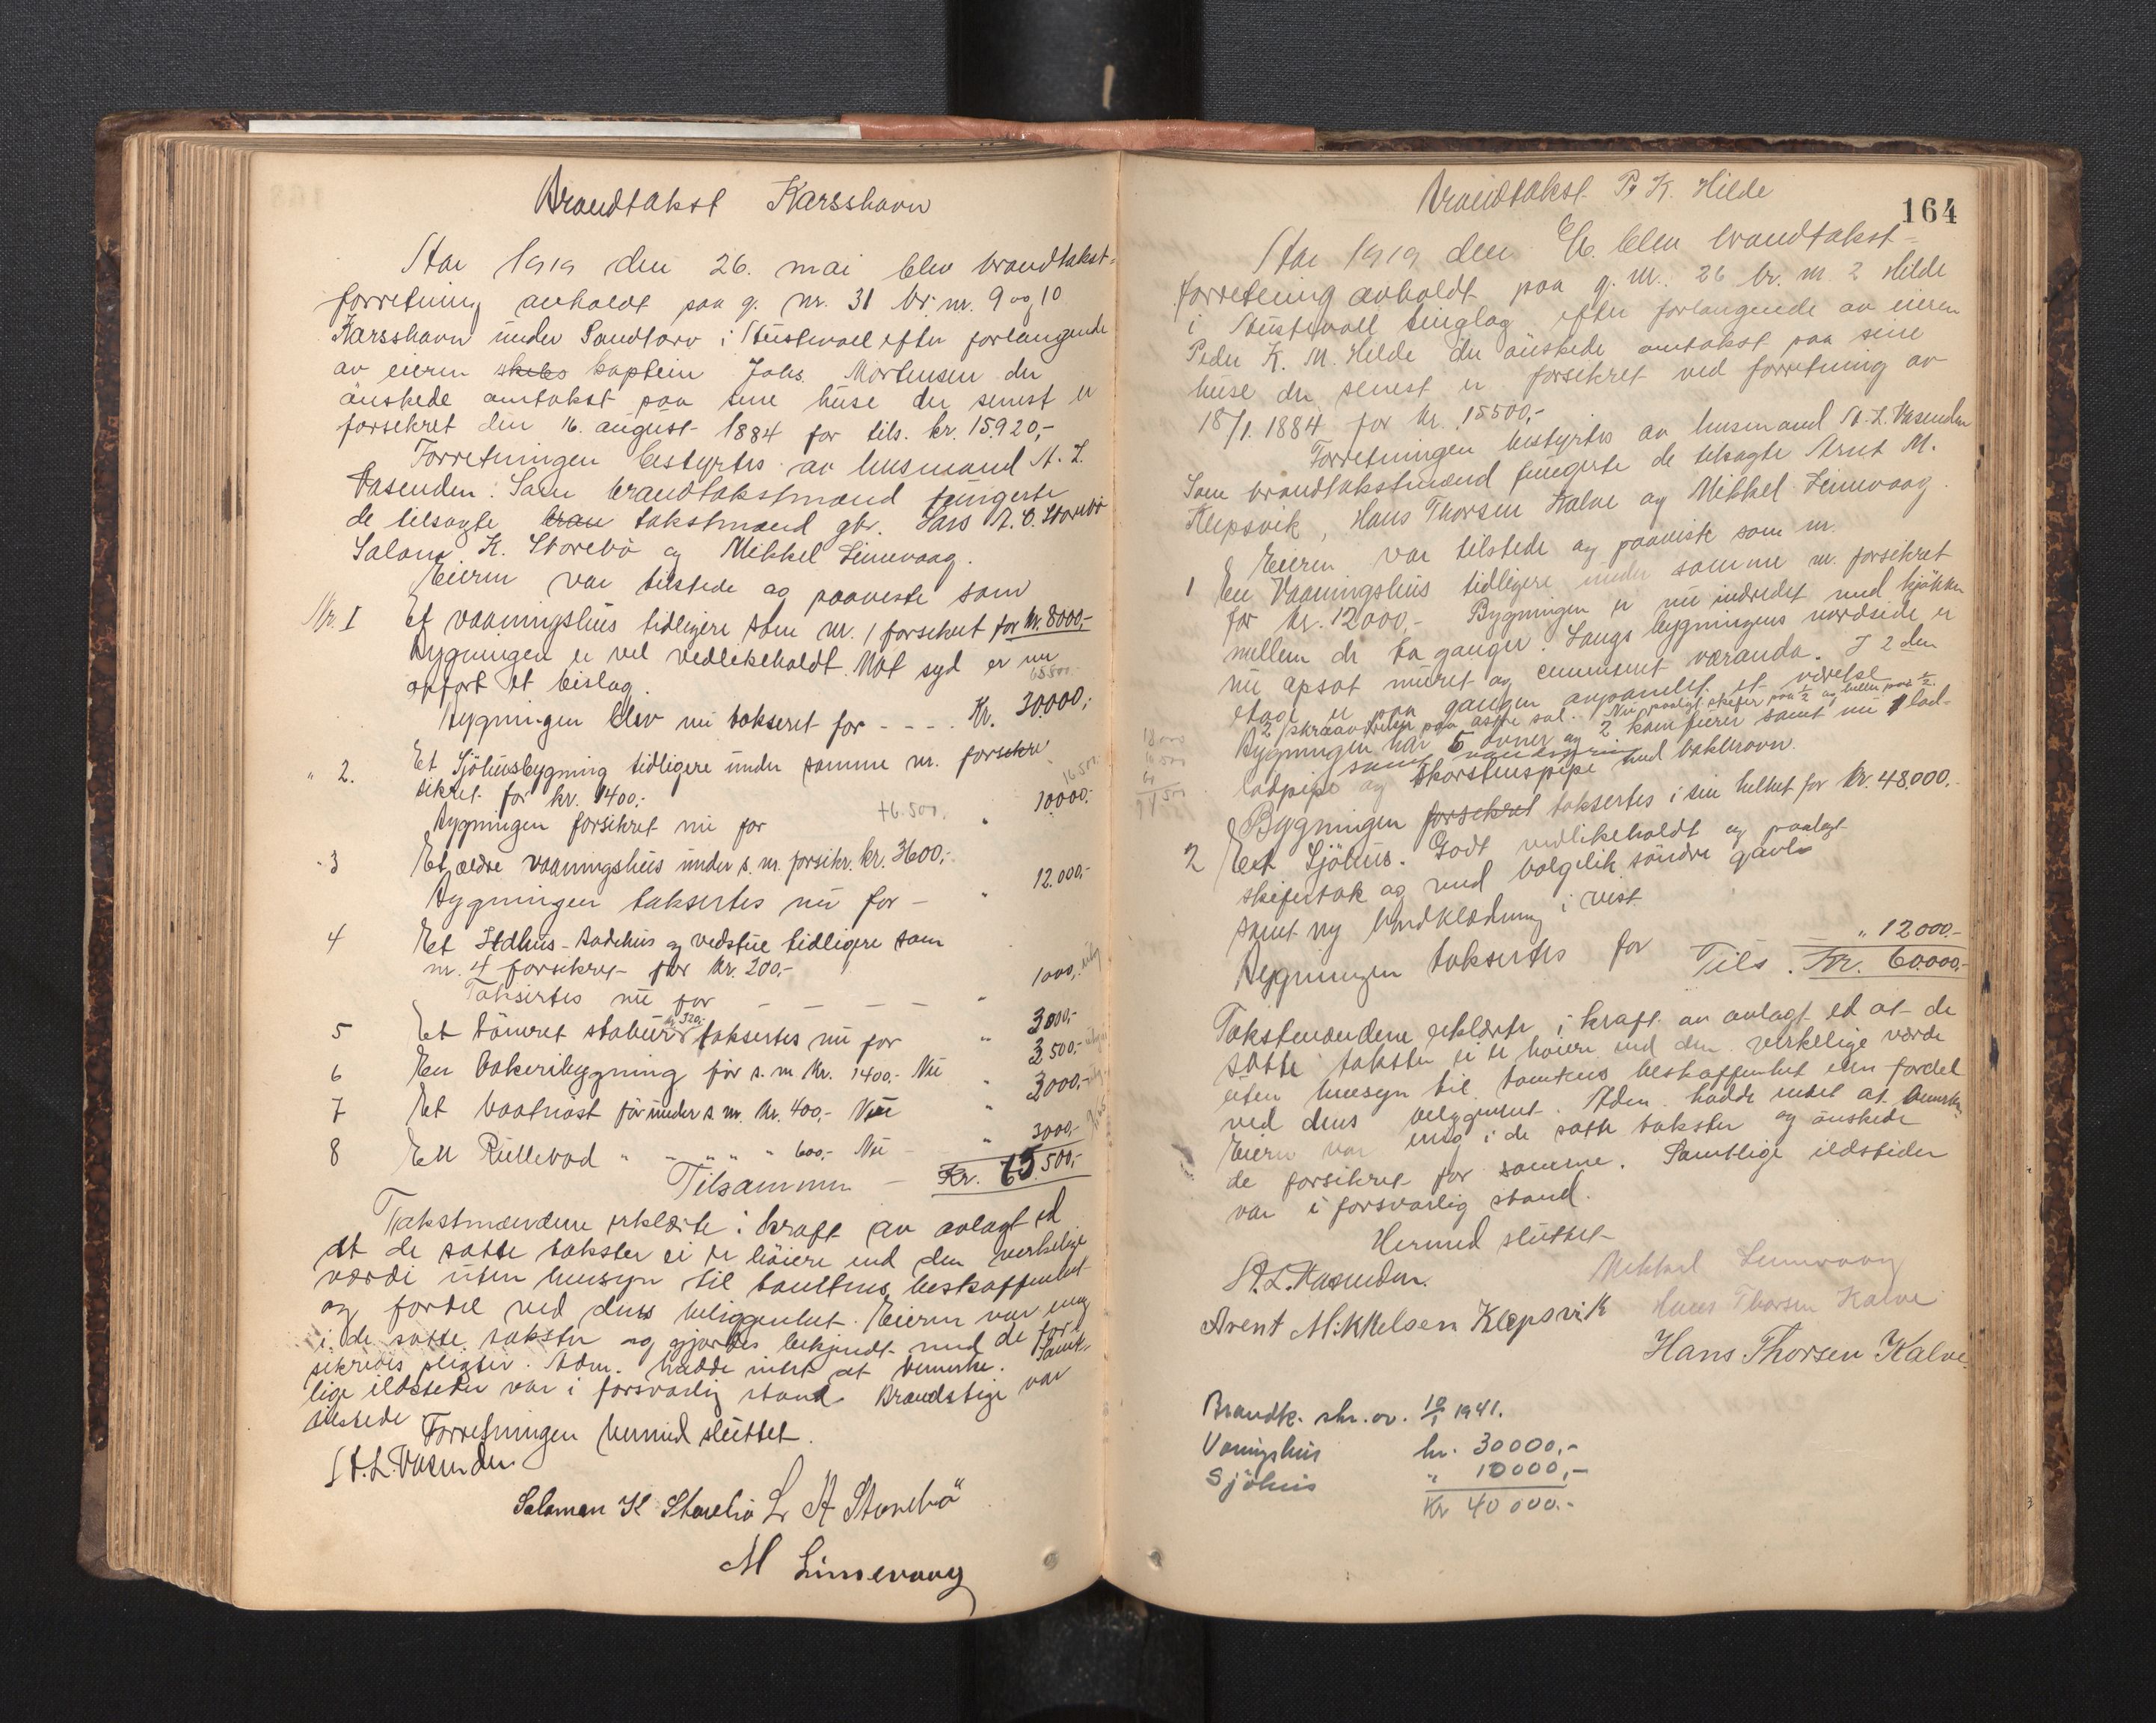 Brandtakst Karsshavn
Aar 1919 den 26. mai blev brandtakst-
forretning avholdt paa g. nr. 31 br. nr. 9 og 10
Karsshavn under Sandtorv i Austevoll efter forlangende
av eieren skibs kaptein Johs. Mortensen der
önskede omtakst paa sine huse der senest er
forsikret den 16. august 1884 for tils. kr. 15920,-
Forretningen bestyrtes av lensmand St. L.
Vasenden. Som brandtakstmænd fungerte
de tilsagte bran takstmænd gbr. Lars A. C. Storebö
Salomon K. Storebö og Mikkel Linnevaag.
Eieren var tilstede og paaviste som
Nr. I Et vaaningshus tidligere som nr. 1 forsikret for kr. 8000,-
Bygningen er vel vedlikeholdt. Mot syd er nu
opfört et bislag.
65500
Bygningen blev nu takseret for - - - - Kr. 30000,-
" 2. Et Sjöhusbygning tidligere under samme nr. forsikre
sikret for kr. 1400,-
16500
Bygningen forsikret nu for 16.500. " 10000,-
" 3 Et ældre vaaningshus under s. nr. forsikr. kr. 3600,-
Bygningen taksertes nu for - " 12.000,-
4 Et Ildhus - badehus og vedskue tidligere som
nr. 4 forsikret for kr. 200,-
Taksertes nu for - - - - " 1000,- utg
5 Et tömret stabur kr. 320,- taksertes nu for " 3000,-
6 En bakeribygning för s. nr. kr. 1400,- Nu " 3500,-
7 Et baatnöst för under s. nr. kr. 400,- Nu " 3000,-
8 En Rullebod " " " " " 600,- Nu - " 3000,-
Tilsammen - Kr. 65.500,-
Takstmændene erklærte i kraft av avlagt ed
at de satte takster ei er höiere end den verkelige
værdi uten hensyn til tomtens beskaffenhet
og fordel ved dens beliggenhet. Eieren var enig
i de satte takster og gjordes bekjendt med de for-
sikredes pligter. Adm. hadde intet at bemerke. Samt-
lige ildsteder var i forsvarlig stand. Brandstige var
tilstede
Forretningen hermed sluttet.
St. L. Vasenden
Salomon K Storebö L A Storebö
M Linnevaag
Brandtakst P. K. Hilde
164
Aar 1919 den blev brandtakst-
forretning avholdt paa g. nr. 26 br. nr. 2 Hilde
i Austevoll tinglag efter forlangende av eieren
Peder K. M. Hilde der önskede omtakst paa sine
huse der senest er forsikret ved forretning av
18/1. 1884 for kr. 15500,-
Forretningen bestyrtes av lensmand St. L. Vasenden
Som brandtakstmænd fungerte de tilsagte Arnt M.
Klepsvik, Hans Thorsen Kalve og Mikkel Linnevaag.
Eieren var tilstede og paaviste som nr.
1 En Vaaningshus tidligere under samme nr. forsikret
for kr. 12000,- Bygningen er nu indredet med kjökken
mellem de to ganger. Langs bygningens nordside er
nu opsat muret og cementeret veranda. I 2den
etage er paa gangen avpanelet et værelse
2 skraaværelser paa östre sal. Nu paalagt skifer paa ½ og heller paa ½.
Bygningen har 5 ovner og 2 kaminer samt nu 1 lod-
samt vandspring
lodpipe og skorstenspipe med bakerovn.
Bygningen forsikret taksertes i sin helhet for kr. 48.000.-
2 Et Sjöhus. Godt vedlikeholdt og paalagt
skifertak og med bolgblik söndre gavl
samt ny bordklædning i vest
Bygningen taksertes for " 12000.-
Tils. Kr. 60.000.-
Takstmændene erklærte i kraft av avlagt ed at de
satte takster ei er höiere end den verkelige værdi
uten hensyn til tomtens beskaffenhet eller fordel
ved dens beliggenhet. Adm. hadde intet at bemerke
Eieren var enig i de satte takster og önskede
de forsikret for samme. Samtlige ildsteder
var i forsvarlig stand.
Hermed sluttet
St. L. Vasenden. Mikkel Linnevaag
Arent Mikkelsen Klepsvik Hans Thorsen Kalve
Hans Thorsen Kalve
Brandk. skr. av. 10/1 1941.
Vaningshus kr. 30000,-
Sjöhus " 10000,-
Kr 40000.-